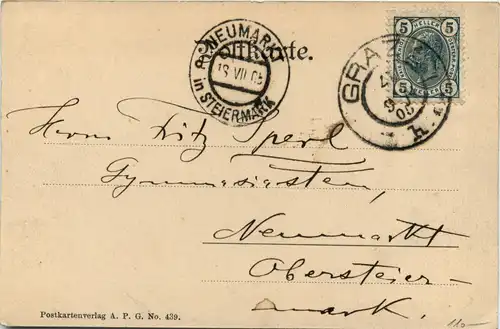 Postkarte.
NEUMARKT
18 VII 05
in STEIERMARK
GRAZ
05
5 HELLER 5
5 5
Herrn Fritz Sperl
Gymnasiasten,
Neumarkt
Obersteier-
mark.
Postkartenverlag A. P. G. No. 439.